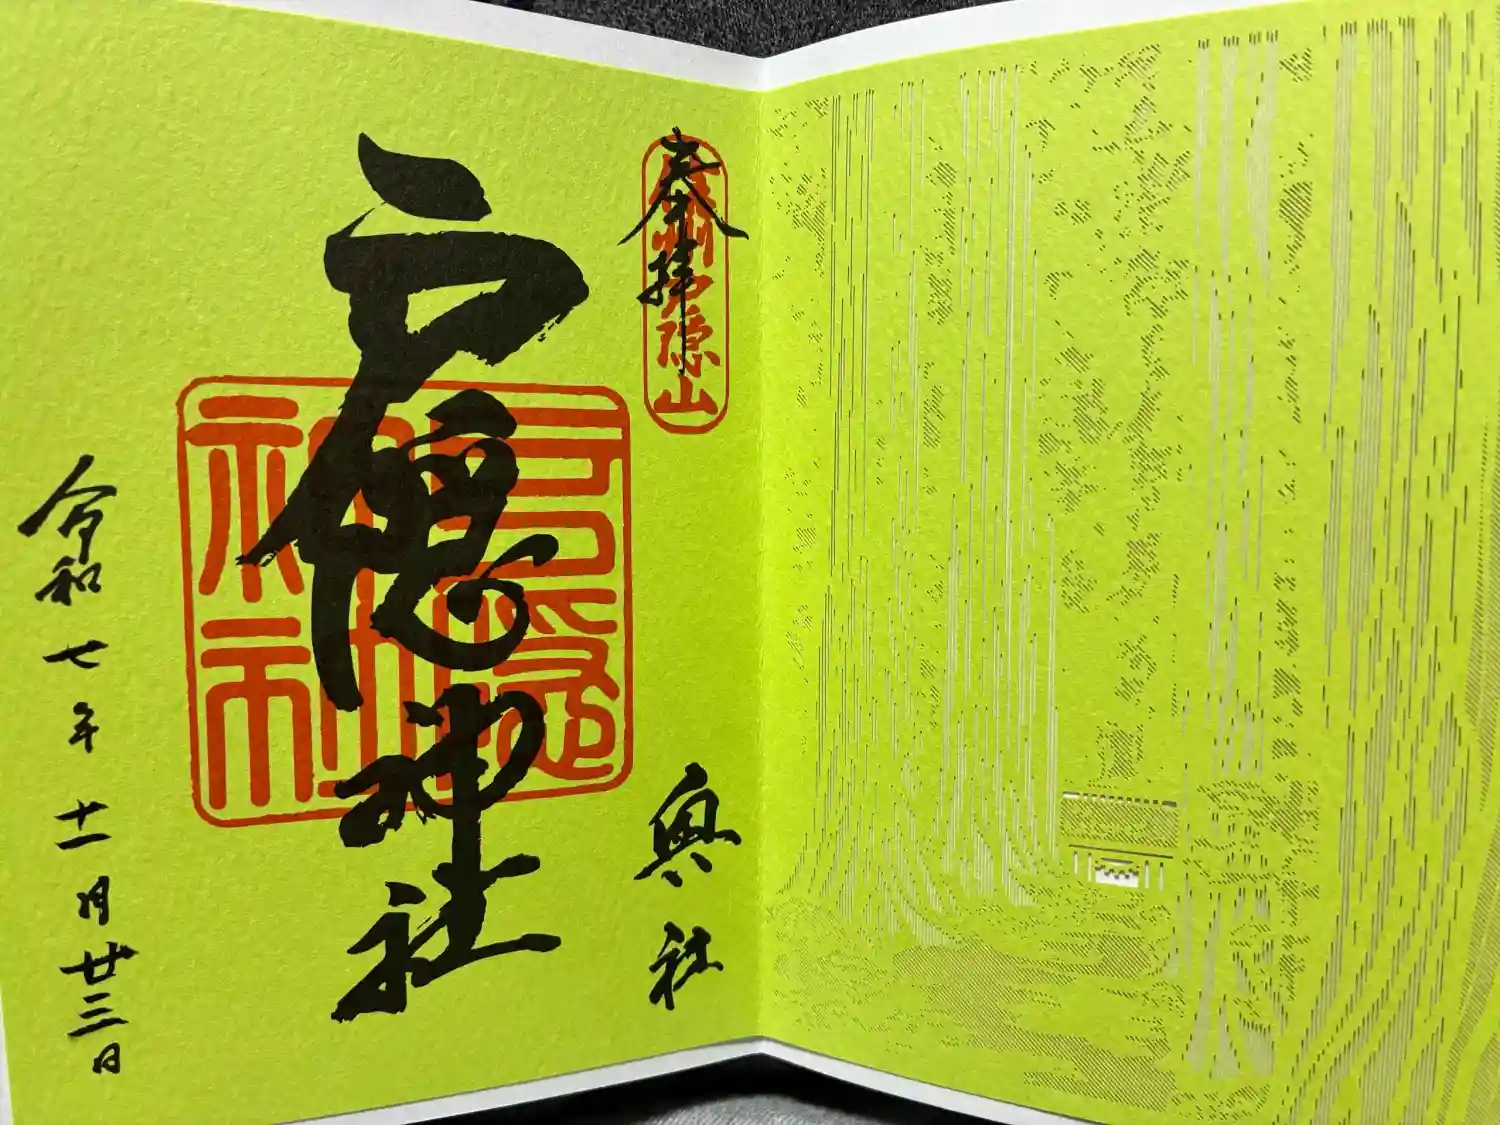 奉拝
信州戸隠山
奥社
戸隠神社
戸隠神社
令和七年十一月廿三日